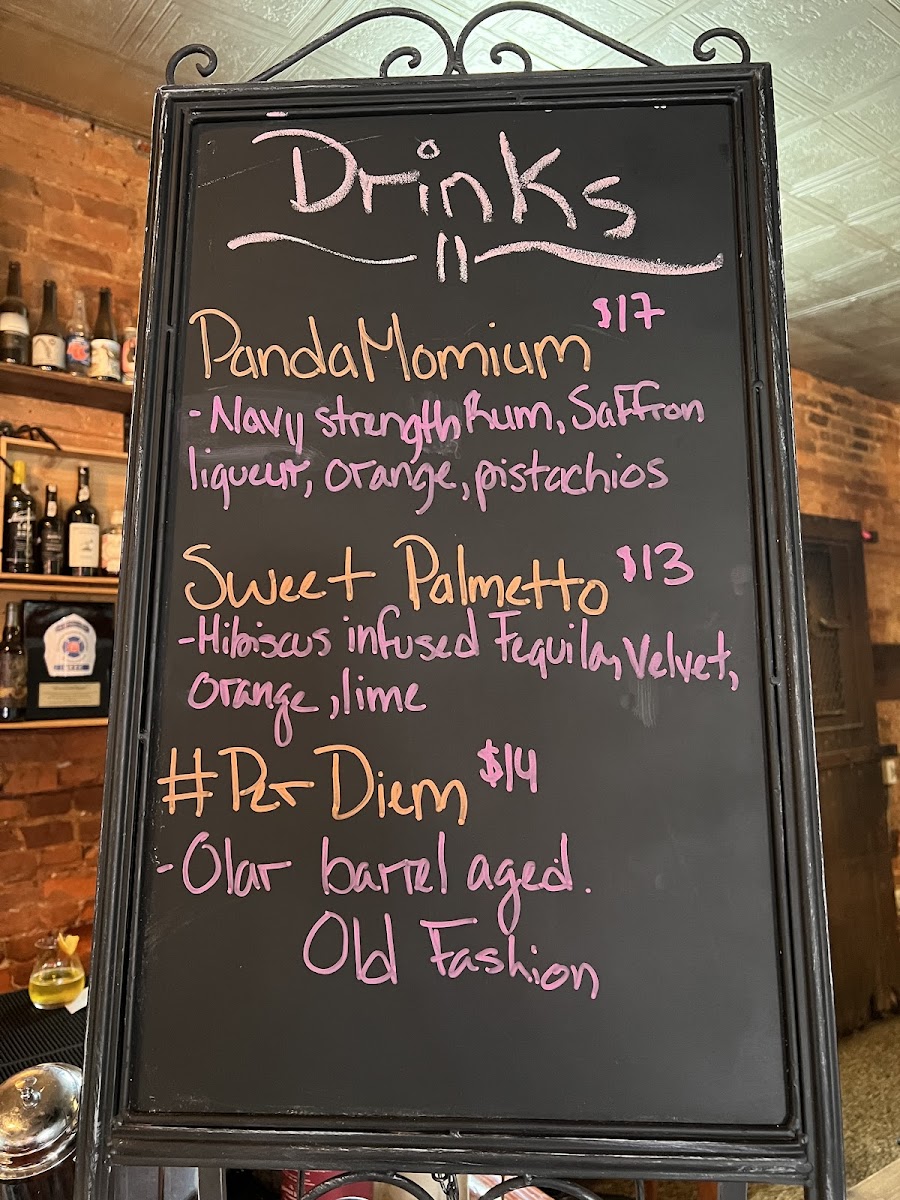 Drinks
PandaMomium $17
-Navy strength Rum, Saffron
liqueur, orange, pistachios
Sweet Palmetto $13
-Hibiscus infused Tequila, Velvet,
orange, lime
#Per Diem $14
-Olar barrel aged.
Old Fashion